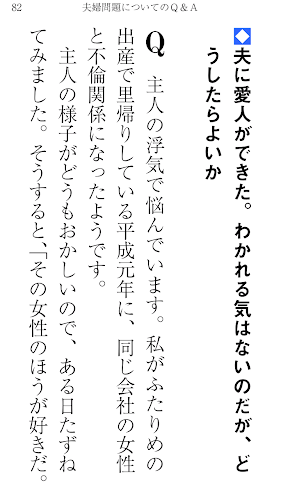 82
夫婦問題についてのQ&A
◆夫に愛人ができた。わかれる気はないのだが、ど
うしたらよいか
Q 主人の浮気で悩んでいます。私がふたりめの
出産で里帰りしている平成元年に、同じ会社の女性
と不倫関係になったようです。
主人の様子がどうもおかしいので、ある日たずね
てみました。そうすると、「その女性のほうが好きだ。